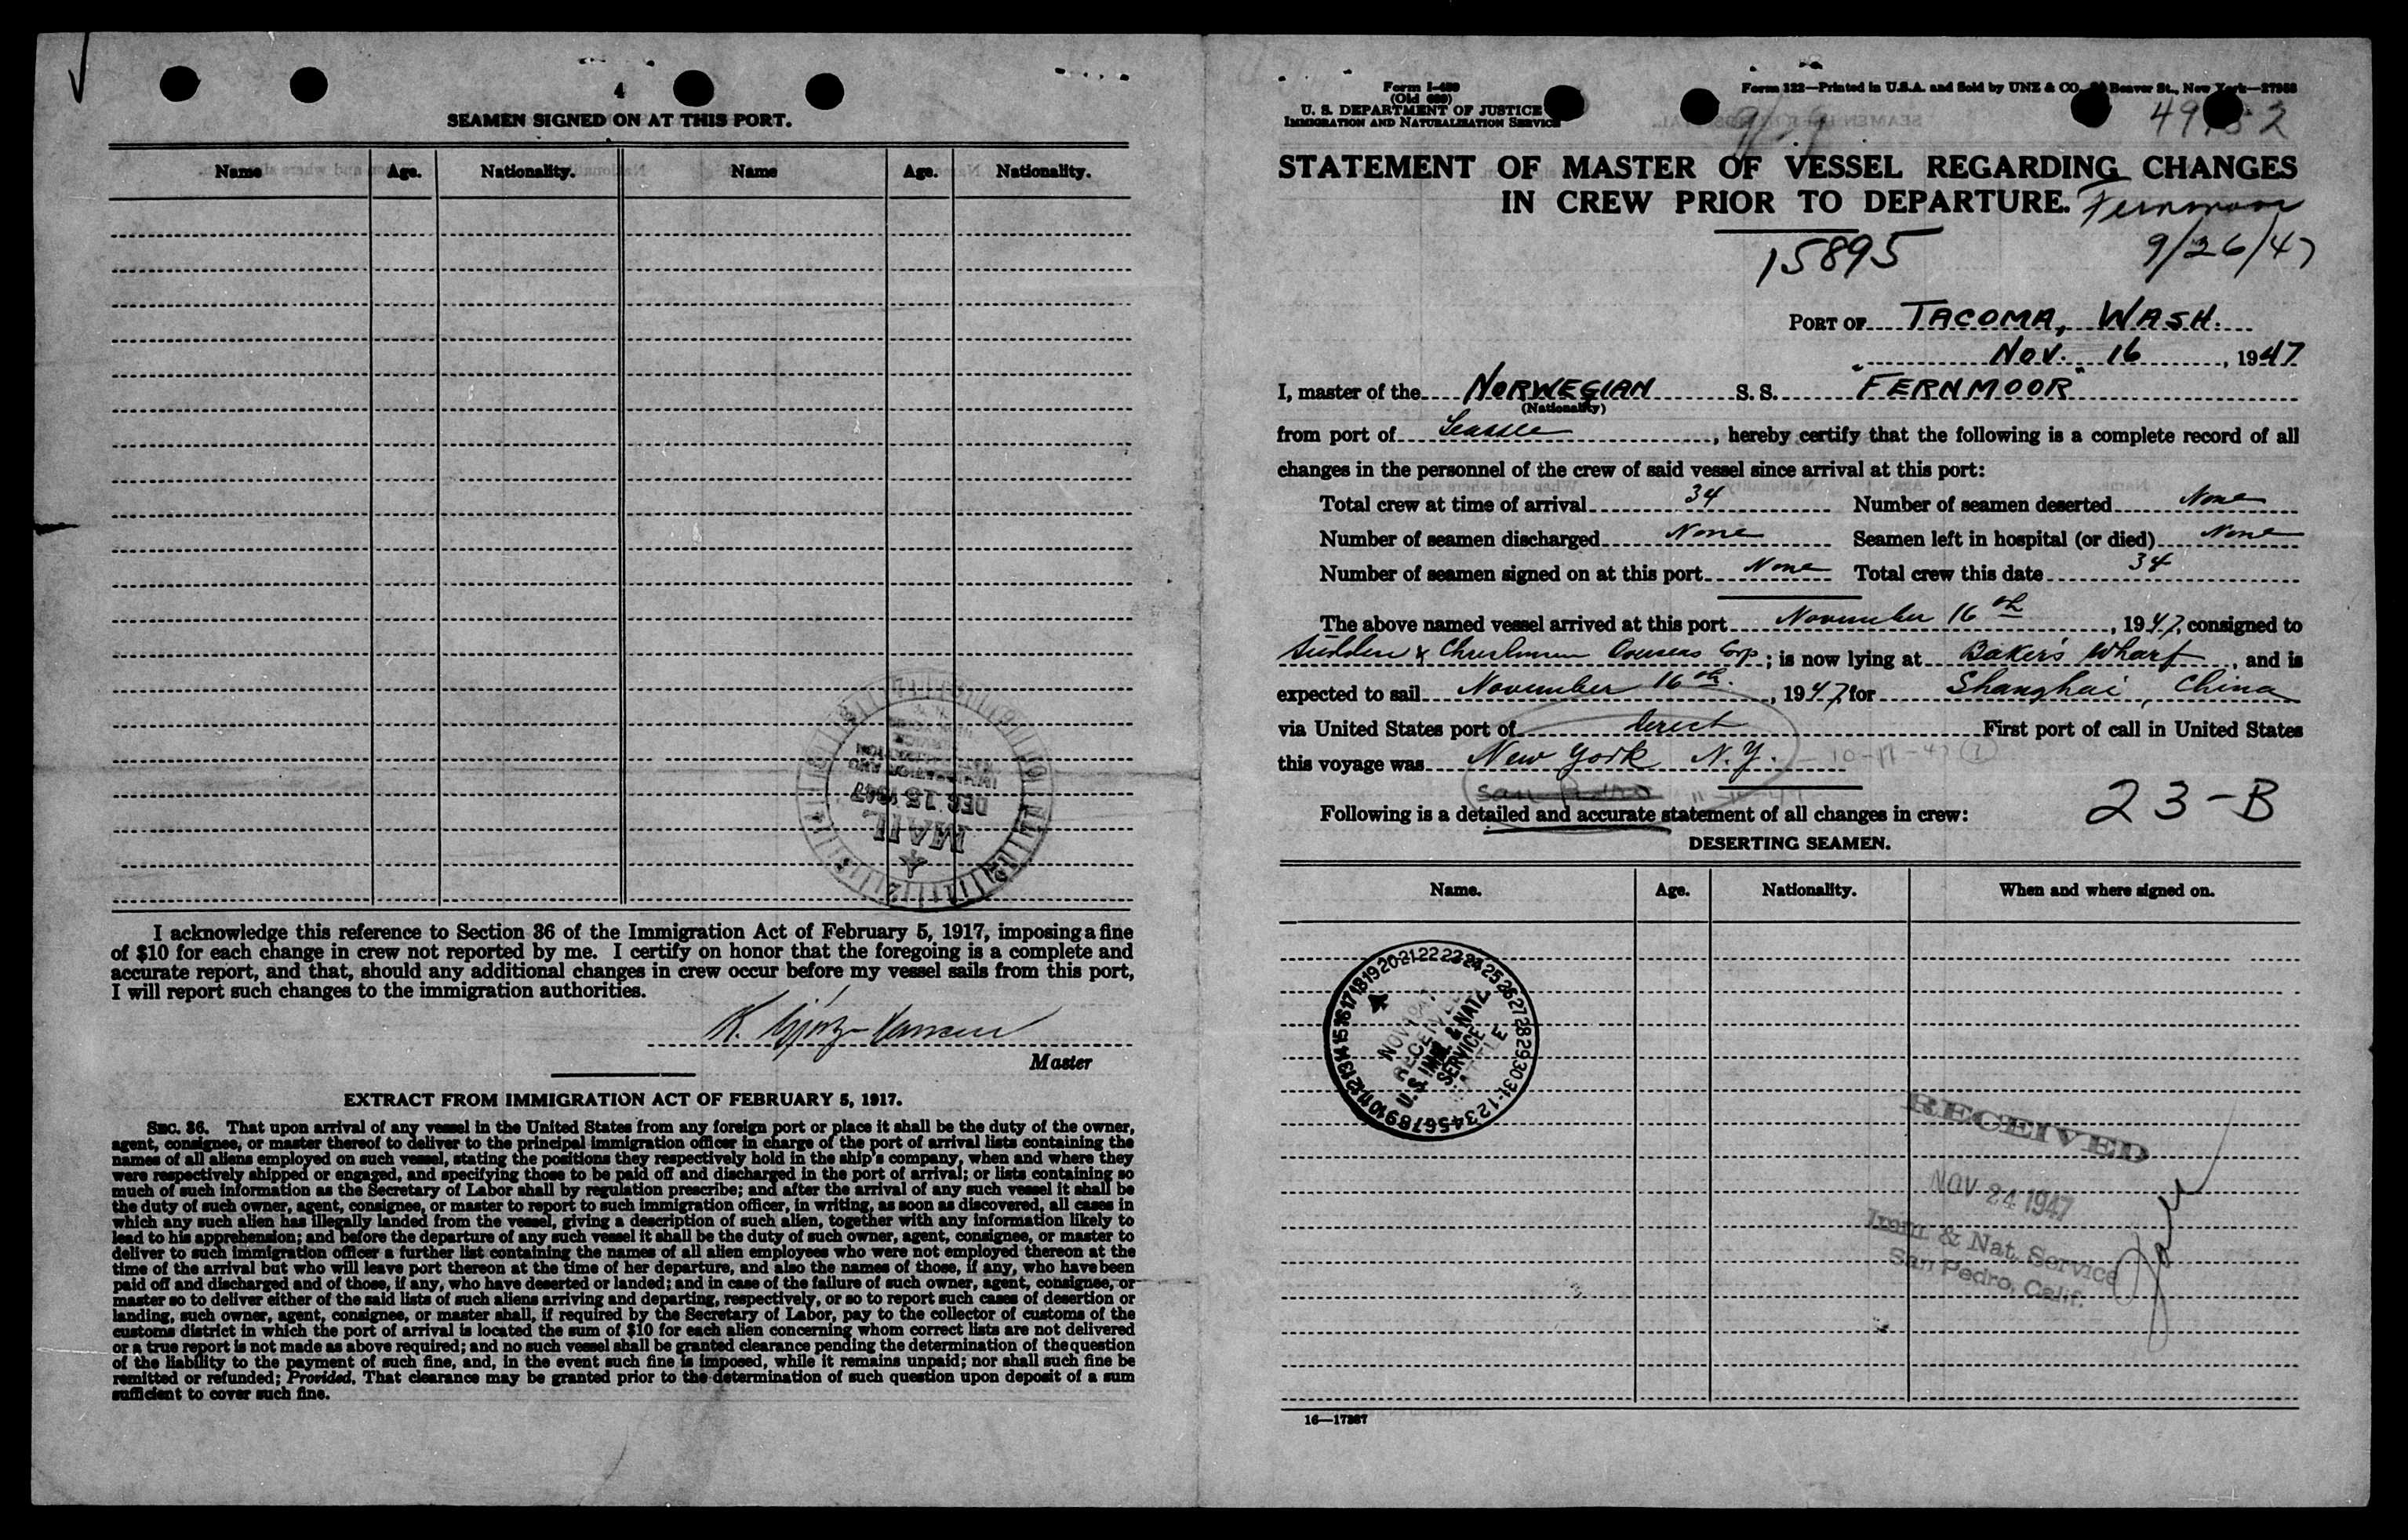 4
SEAMEN SIGNED ON AT THIS PORT.
Name Age. Nationality. Name Age. Nationality.
MAIL
DEC 15 1947
IMMIGRATION AND
I acknowledge this reference to Section 36 of the Immigration Act of February 5, 1917, imposing a fine
of $10 for each change in crew not reported by me. I certify on honor that the foregoing is a complete and
accurate report, and that, should any additional changes in crew occur before my vessel sails from this port,
I will report such changes to the immigration authorities.
K.
Master
EXTRACT FROM IMMIGRATION ACT OF FEBRUARY 5, 1917.
SEC. 36. That upon arrival of any vessel in the United States from any foreign port or place it shall be the duty of the owner,
agent, consignee, or master thereof to deliver to the principal immigration officer in charge of the port of arrival lists containing the
names of all aliens employed on such vessel, stating the positions they respectively hold in the ship's company, when and where they
were respectively shipped or engaged, and specifying those to be paid off and discharged in the port of arrival; or lists containing so
much of such information as the Secretary of Labor shall by regulation prescribe; and after the arrival of any such vessel it shall be
the duty of such owner, agent, consignee, or master to report to such immigration officer, in writing, as soon as discovered, all cases in
which any such alien has illegally landed from the vessel, giving a description of such alien, together with any information likely to
lead to his apprehension; and before the departure of any such vessel it shall be the duty of such owner, agent, consignee, or master to
deliver to such immigration officer a further list containing the names of all alien employees who were not employed thereon at the
time of the arrival but who will leave port thereon at the time of her departure, and also the names of those, if any, who have been
paid off and discharged and of those, if any, who have deserted or landed; and in case of the failure of such owner, agent, consignee, or
master so to deliver either of the said lists of such aliens arriving and departing, respectively, or so to report such cases of desertion or
landing, such owner, agent, consignee, or master shall, if required by the Secretary of Labor, pay to the collector of customs of the
customs district in which the port of arrival is located the sum of $10 for each alien concerning whom correct lists are not delivered
or a true report is not made as above required; and no such vessel shall be granted clearance pending the determination of the question
of the liability to the payment of such fine, and, in the event such fine is imposed, while it remains unpaid; nor shall such fine be
remitted or refunded; Provided, That clearance may be granted prior to the determination of such question upon deposit of a sum
sufficient to cover such fine.
Form I-489
(Old 689)
U. S. DEPARTMENT OF JUSTICE
IMMIGRATION AND NATURALIZATION SERVICE
Form 122—Printed in U.S.A. and Sold by UNZ & CO. Beaver St., New York—27388
STATEMENT OF MASTER OF VESSEL REGARDING CHANGES
IN CREW PRIOR TO DEPARTURE. Fernmoor
15895 9/26/47
PORT OF TACOMA, WASH.
Nov. 16, 1947
I, master of the NORWEGIAN S. S. "FERNMOOR"
(Nationality)
from port of Seattle, hereby certify that the following is a complete record of all
changes in the personnel of the crew of said vessel since arrival at this port:
Total crew at time of arrival 34 Number of seamen deserted None
Number of seamen discharged None Seamen left in hospital (or died) None
Number of seamen signed on at this port None Total crew this date 34
The above named vessel arrived at this port November 16th, 1947, consigned to
Sudden & Christenson Overseas Corp; is now lying at Baker's Wharf, and is
expected to sail November 16th, 1947 for Shanghai, China
via United States port of direct First port of call in United States
this voyage was New York N.Y.
San Pedro
23-B
Following is a detailed and accurate statement of all changes in crew:
DESERTING SEAMEN.
Name. Age. Nationality. When and where signed on.
RECEIVED
U.S. IMM. & NATZ
SERVICE
SEATTLE
RECEIVED
NOV 24 1947
Imm. & Nat. Service
San Pedro, Calif.
16—17367